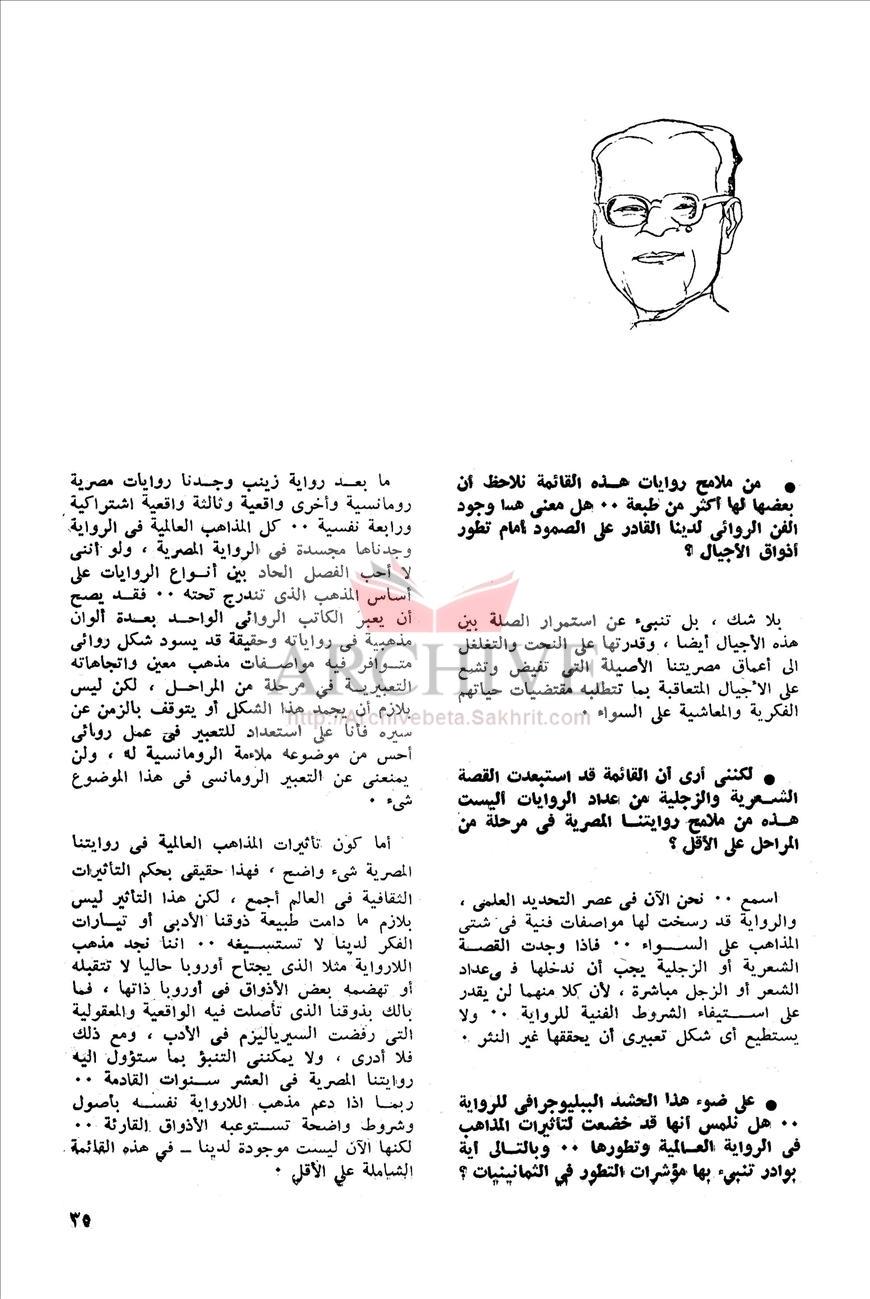 ● من ملامح روايات هــذه القائمة نلاحظ أن
بعضها لها أكثر من طبعة ٠٠ هل معنى هــا وجود
الفن الروائى لدينا القادر على الصمود أمام تطور
أذواق الأجيال ؟
بلا شك ، بل تنبىء عن استمرار الصلة بين
هذه الأجيال أيضا ، وقدرتها على النحت والتغلغل
الى أعماق مصريتنا الأصيلة التى تفيض وتشبع
على الأجيال المتعاقبة بما تتطلبه مقتضيات حياتهم
الفكرية والمعاشية على السواء ٠
● لكننى أرى أن القائمة قد استبعدت القصة
الشــعرية والزجلية من عداد الروايات أليست
هــذه من ملامح روايتنــا المصرية فى مرحلة من
المراحل على الأقل ؟
اسمع ٠٠ نحن الآن فى عصر التحديد العلمى ،
والرواية قد رسخت لها مواصفات فنية فى شتى
المذاهب على الســـواء ٠٠ فاذا وجدت القصــة
الشعرية أو الزجلية يجب أن ندخلها فى عداد
الشعر أو الزجل مباشرة ، لأن كلا منهما لن يقدر
على اســتيفاء الشروط الفنية للرواية ٠٠ ولا
يستطيع أى شكل تعبيرى أن يحققها غير النثر ٠
● على ضوء هذا الحشد الببليوجرافى للرواية
٠٠ هل نلمس أنها قد خضعت لتأثيرات المذاهب
فى الرواية العــالمية وتطورها ٠٠ وبالتــالى أية
بوادر تنبىء بها مؤشرات التطور في الثمانينيات ؟
ما بعــد رواية زينب وجــدنا روايات مصرية
رومانسية وأخرى واقعية وثالثة واقعية اشتراكية
ورابعة نفسية ٠٠ كل المذاهب العالمية فى الرواية
وجدناها مجسدة فى الرواية المصرية ، ولو أننى
لا أحب الفصل الحاد بين أنــواع الروايات على
أساس المذهب الذى تندرج تحته ٠٠ فقــد يصح
أن يعبر الكاتب الروائى الواحــد بعــدة ألوان
مذهبية فى رواياته وحقيقة قد يسود شكل روائى
متــوافر فيه مواصــفات مذهب معين واتجاهاته
التعبيريــة في مرحلة من المراحــل ، لكن ليس
بلازم أن يجمد هذا الشكل أو يتوقف بالزمن عن
سيره فأنا على استعداد للتعبير فى عمل روائى
أحس من موضوعه ملاءمة الرومانسية له ، ولن
يمنعنى عن التعبير الرومانسى فى هذا الموضوع
شىء ٠
أما كون تأثيرات المذاهب العالمية فى روايتنا
المصرية شىء واضح ، فهذا حقيقى بحكم التأثيرات
الثقافية فى العالم أجمع ، لكن هذا التأثير ليس
بلازم ما دامت طبيعة ذوقنا الأدبى أو تيــارات
الفكر لدينا لا تستســيغه ٠٠ اننا نجد مذهب
اللارواية مثلا الذى يجتاح أوروبا حاليا لا تتقبله
أو تهضمه بعض الأذواق فى أوروبا ذاتها ، فما
بالك بذوقنا الذى تأصلت فيه الواقعية والمعقولية
التى رفضت السيرياليزم فى الأدب ، ومع ذلك
فلا أدرى ، ولا يمكننى التنبؤ بما ستؤول اليه
روايتنا المصرية فى العشر ســنوات القادمة ٠٠
ربمــا اذا دعم مذهب اللارواية نفســه بأصول
وشروط واضحة تســتوعبه الأذواق القارئة ٠٠
لكنها الآن ليست موجودة لدينا ــ في هذه القائمة
الشاملة على الأقل ٠
٣٥
ARCHIVE
http://Archivebeta.Sakhrit.com